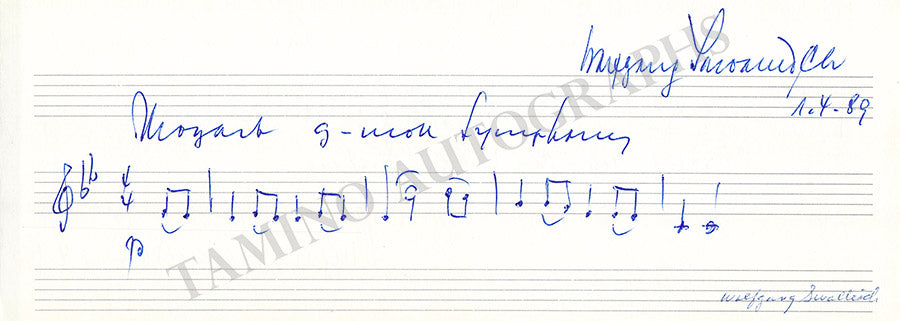 Wolfgang Sawallisch
1.4.89
Mozart g-moll Symphonie
4
4
p
TAMINO AUTOGRAPHS
Wolfgang Sawallisch